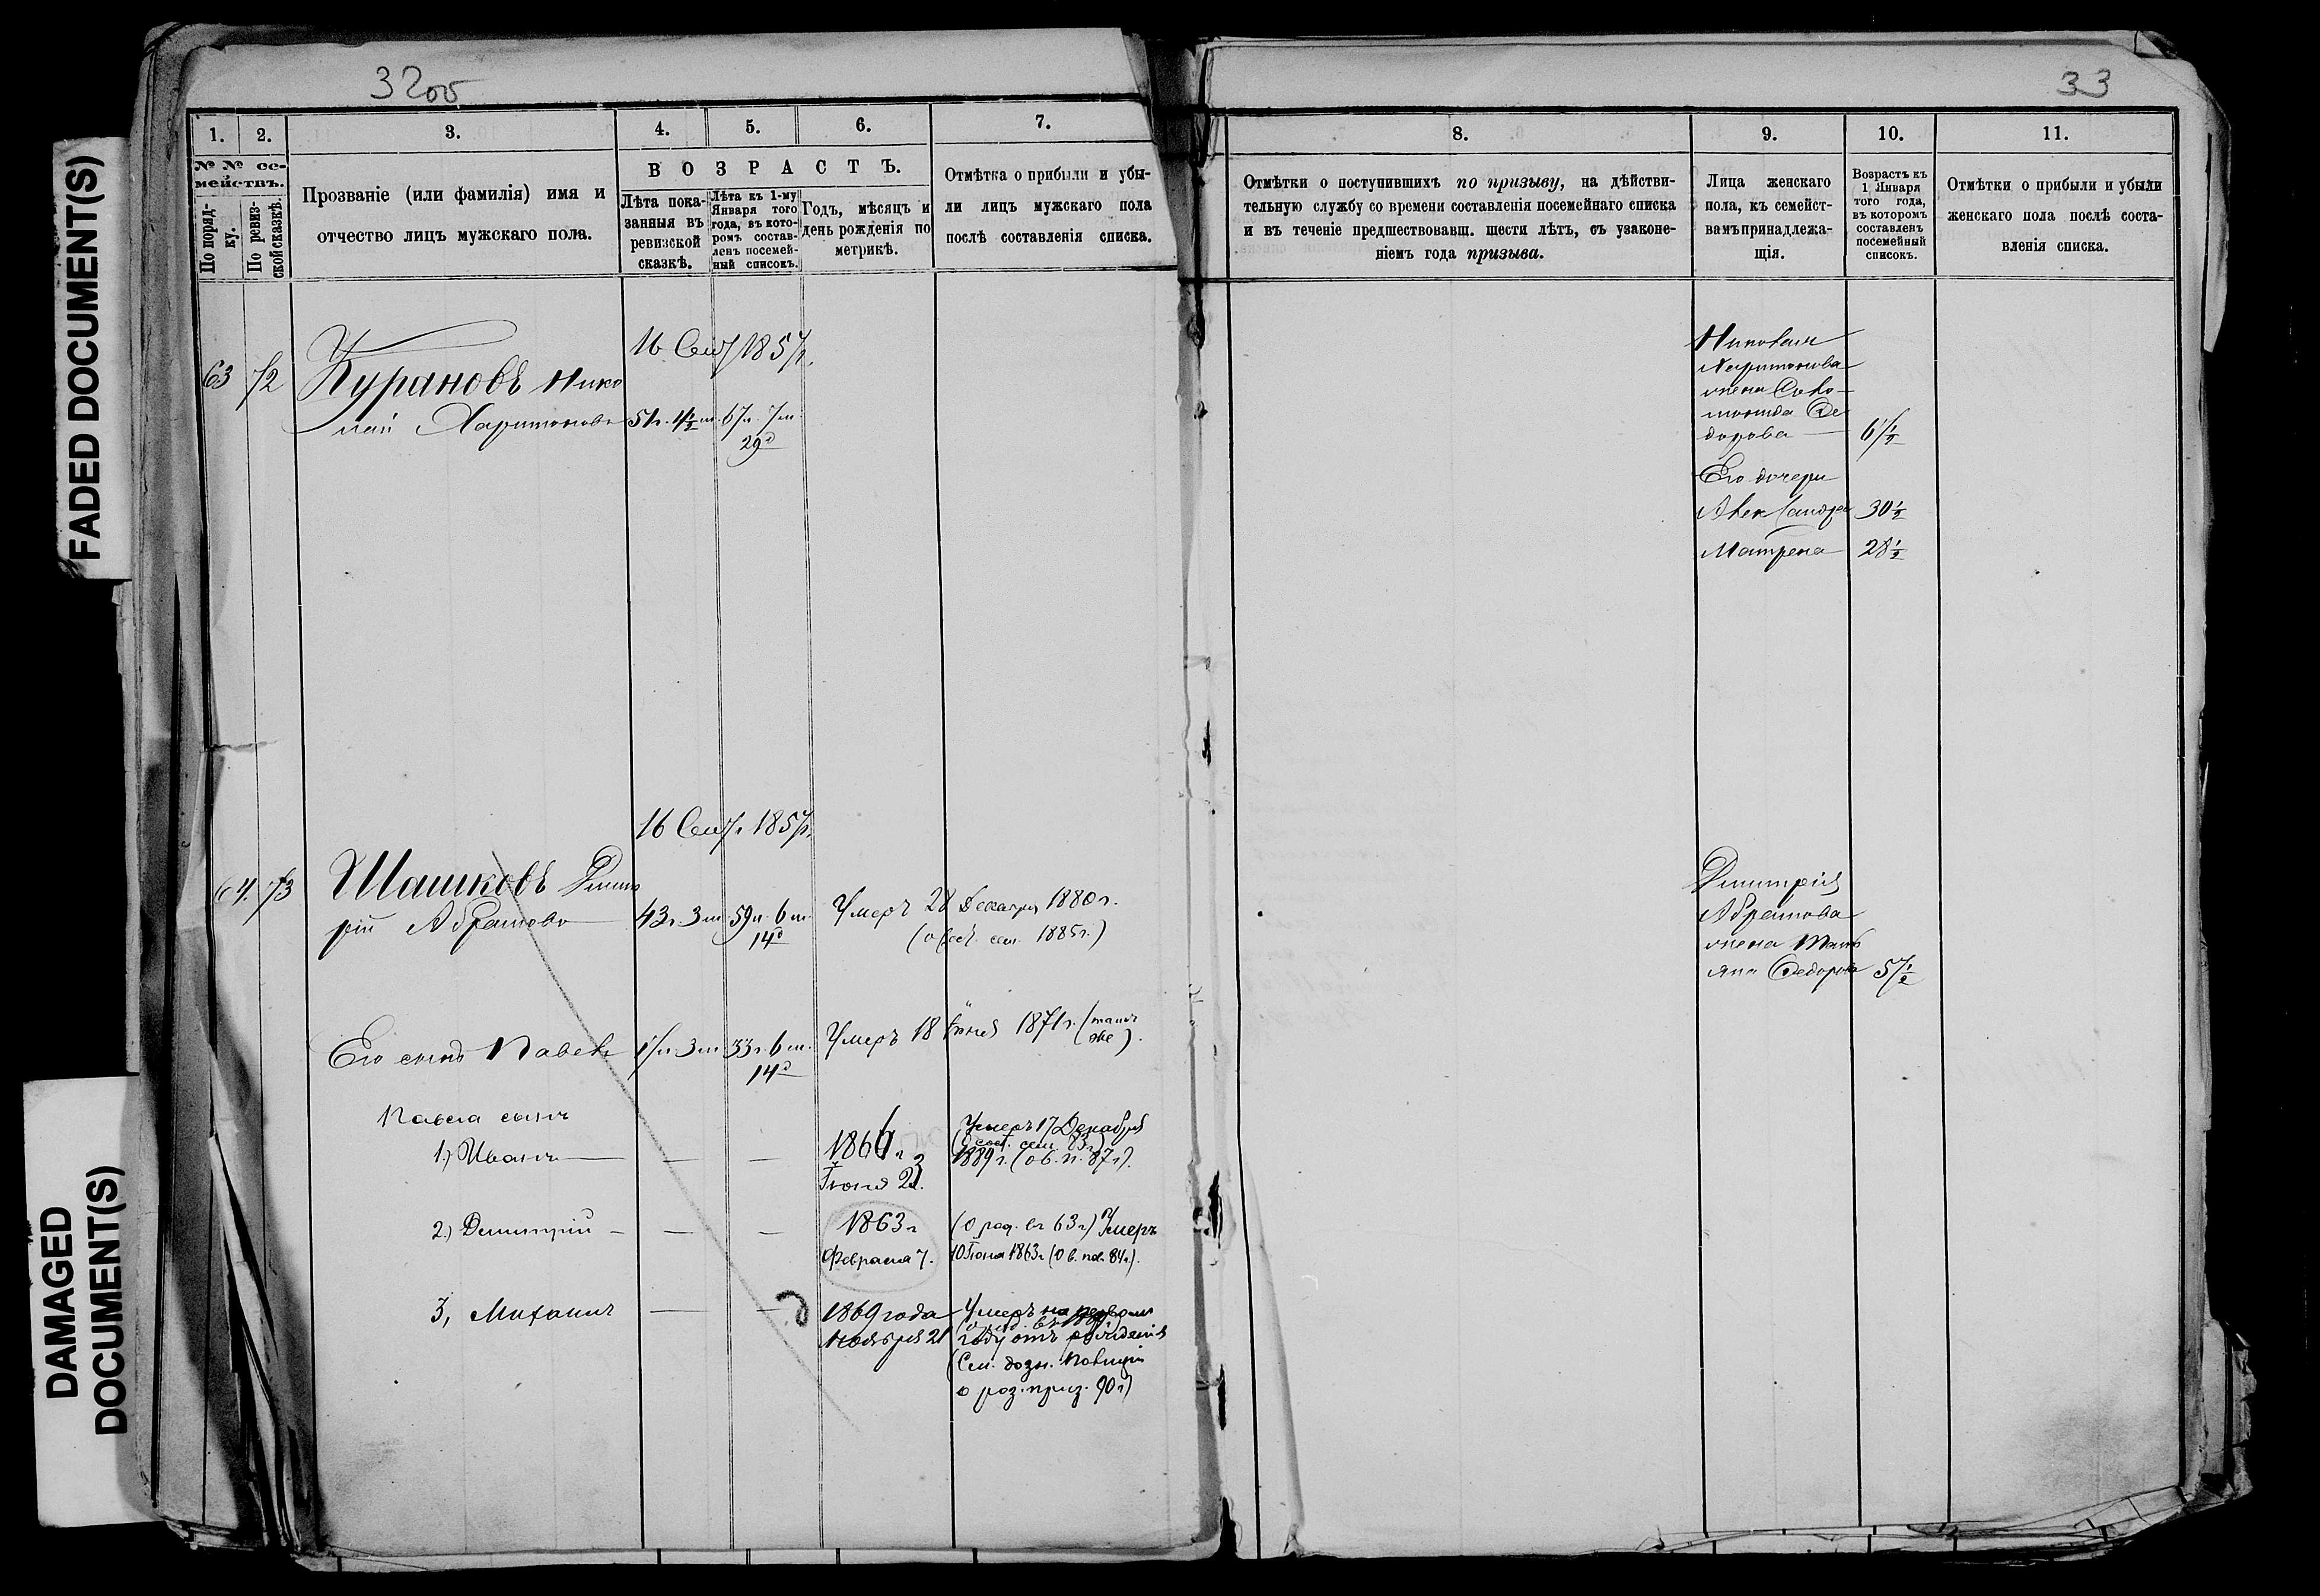 32об
33
FADED DOCUMENT(S)
DAMAGED
DOCUMENT(S)
1.
2.
3.
4.
5.
6.
7.
№ № се-
мействъ.
По поряд-
ку.
По ревиз-
ской сказкѣ.
Прозваніе (или фамилія) имя и
отчество лицъ мужскаго пола.
ВОЗРАСТЪ.
Лѣта пока-
занныя въ
ревизской
сказкѣ.
Лѣта къ 1-му
Января того
года, въ кото-
ромъ состав-
ленъ посемей-
ный списокъ.
Годъ, мѣсяцъ и
день рожденія по
метрикѣ.
Отмѣтка о прибыли и убы-
ли лицъ мужскаго пола
послѣ составленія списка.
8.
9.
10.
11.
Отмѣтки о поступившихъ по призыву, на дѣйстви-
тельную службу со времени составленія посемейнаго списка
и въ теченіе предшествовавш. шести лѣтъ, съ узаконе-
ніемъ года призыва.
Лица женскаго
пола, къ семейст-
вамъ принадлежа-
щія.
Возрастъ къ
1 Января
того года,
въ которомъ
составленъ
посемейный
списокъ.
Отмѣтки о прибыли и убыли
женскаго пола послѣ соста-
вленія списка.
16 Сент 1857г.
63 72 Курановъ Нико
лай Харитоновъ 51г. 4½м. 67л. 7м.
29д
Николая
Харитонова
жена
Фе
дорова 67½
Его дочери
Александра 30½
Матрена 28½
16 Сент. 1857г.
64. 73 Шашковъ Дмит
рій Абрамовъ 43г. 3м. 59л. 6м.
14д
Умеръ 28 Декабря 1880г.
(о сем. 1885г.)
Дмитрія
Абрамова
жена Тать
яна Федорова 57½
Его сынъ Павелъ 17л. 3м. 33г. 6м.
14д
Умеръ 18 Іюня 1871г. (тамъ
же).
Павла сынъ
1.) Иванъ — — —
1866г.
Іюня 23.
Умеръ 17 Декабря
(О сост. сем. 83г.)
1889г. (об. п. 87г).
2.) Димитрій — — —
1863г
Февраля 7.
(О род. въ 63г.) Умеръ
10 Іюня 1863г. (Об. пов. 84г.).
3, Михаилъ — —
1869 года
Ноября 21
Умеръ на первомъ
году отъ рожденія
(См. дозн. Полиціи
о роз. приз. 90г)